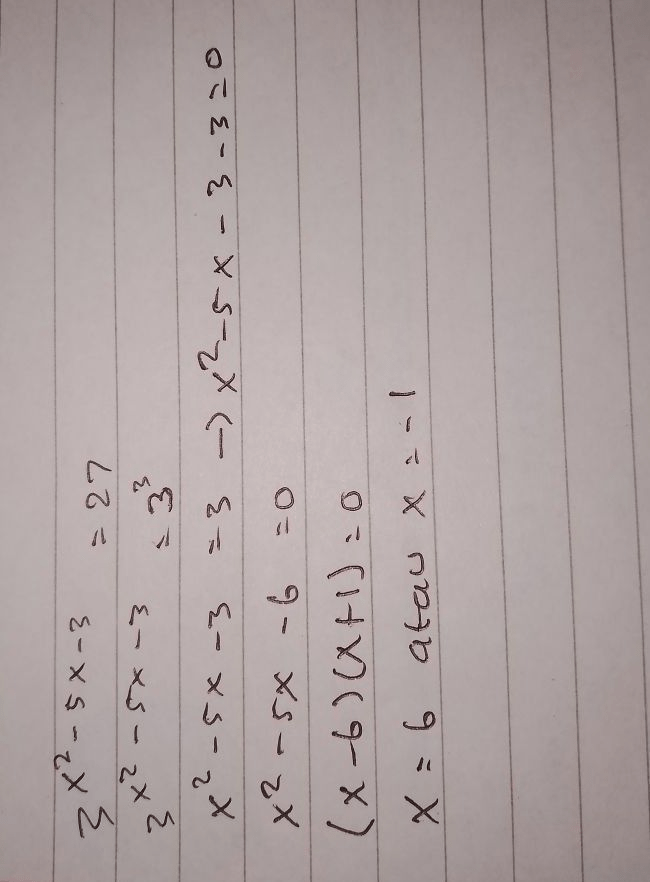 3^{x^2 - 5x - 3} = 27
3^{x^2 - 5x - 3} = 3^3
x^2 - 5x - 3 = 3 → x^2 - 5x - 3 - 3 = 0
x^2 - 5x - 6 = 0
(x - 6)(x + 1) = 0
x = 6 atau x = -1